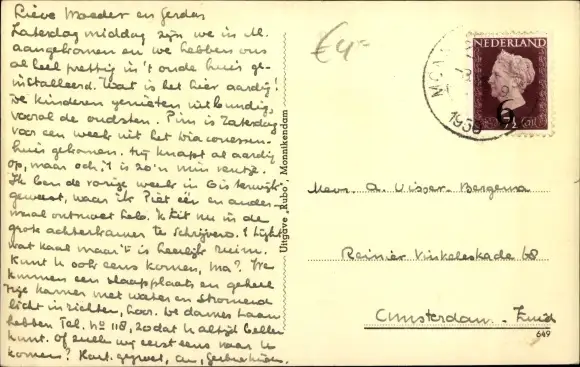 Lieve Moeder en Gerda,
Zaterdag middag zijn we in M.
aangekomen en we hebben ons
al heel prettig in 't oude huis ge-
installeerd. Wat is het hier aardig!
De kinderen genieten uitbundig,
vooral de oudsten. Pim is Zaterdag
voor een week uit het Diaconessen-
huis gekomen. Hij knapt al aardig
op, maar och, 't is zo'n min ventje.
Ik ben de vorige week in Oisterwijk
geweest, waar ik Piet één en ander-
maal ontmoet heb. Ik zit nu in de
grote achterkamer te schrijven. 't Lijkt
wat kaal maar 't is heerlijk ruim.
Kunt U ook eens komen, Ma? We
kunnen een slaapplaats en gehele
kamer met water en stromend
licht inrichten, hoor. De dames Laan
hebben Tel. No 118, zodat U altijd bellen
kunt. Of zullen wij eerst eens naar U
komen? Hart. groet, 
Uitgave „Rubo", Monnikendam
€4,=
NEDERLAND
6
7½ cent
MON
1950
Mevr. A. Visser-Bergema
Reinier Vinkeleskade 68
Amsterdam-Zuid
649